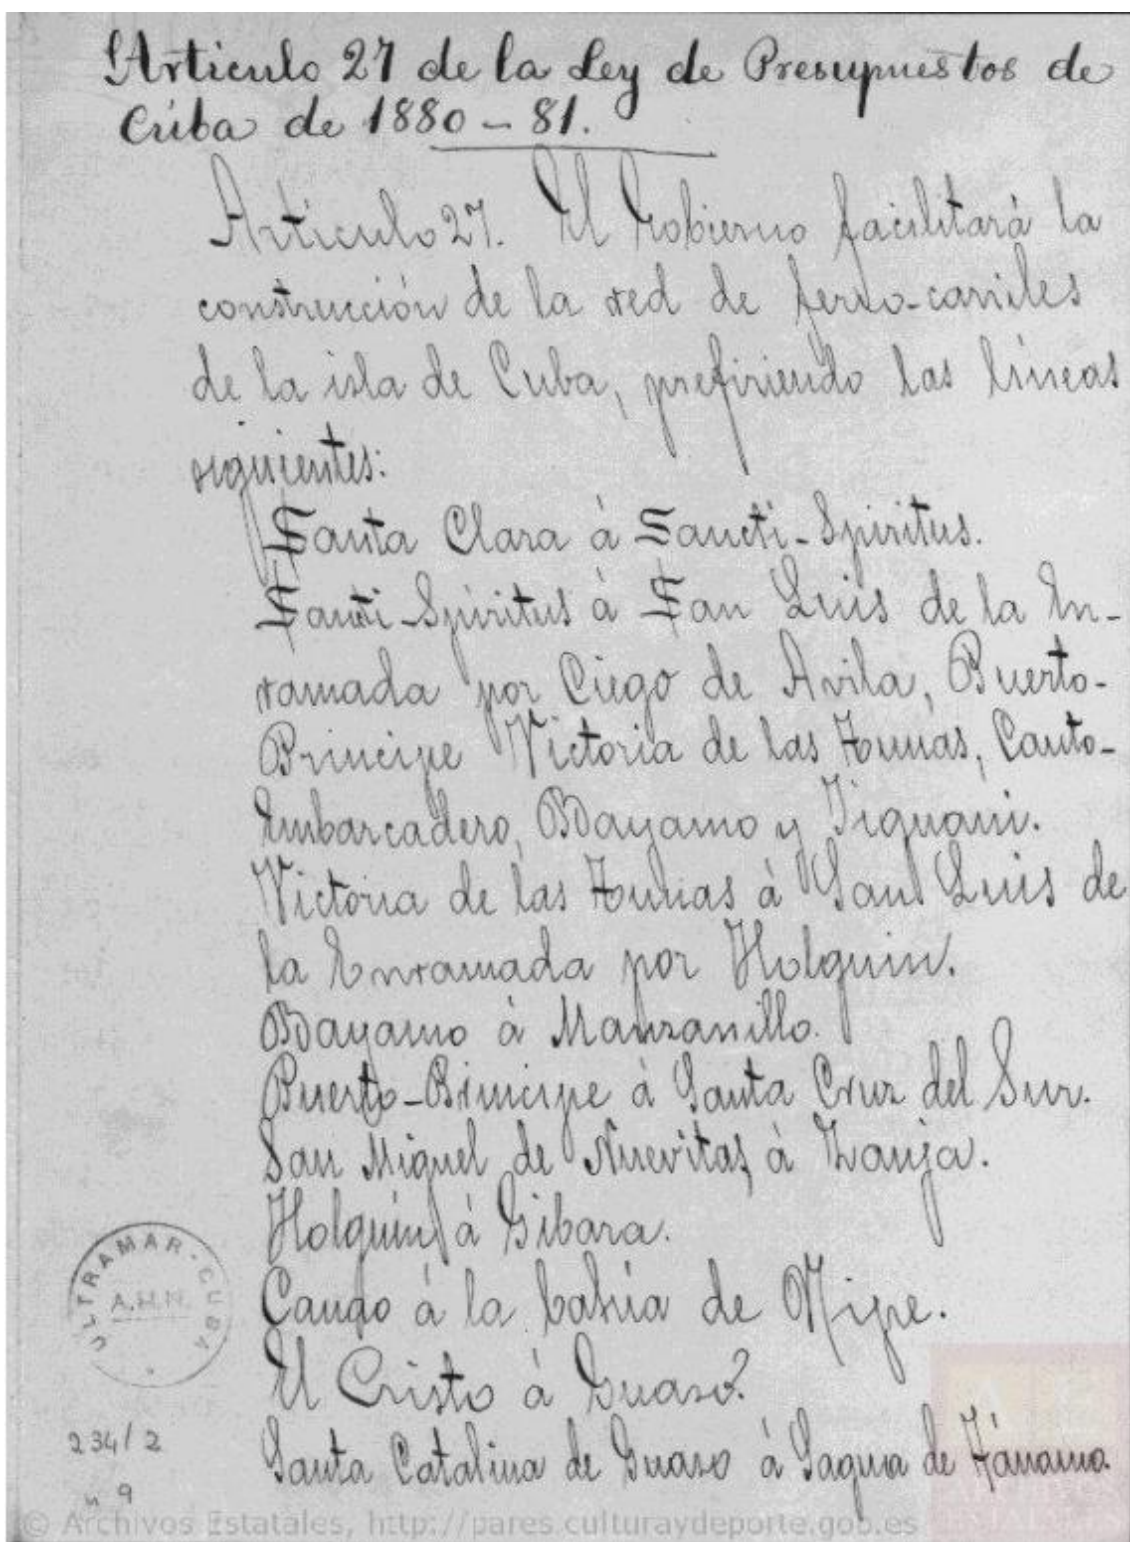 Articulo 27 de la Ley de Presupuestos de
Cuba de 1880-81.
Articulo 27. El Gobierno facilitará la
construcción de la red de ferro-carriles
de la isla de Cuba, prefiriendo las líneas
siguientes:
Santa Clara á Sancti-Spiritus.
Sancti-Spiritus á San Luis de la En-
ramada por Ciego de Avila, Puerto-
Principe Victoria de las Tunas, Cauto-
Embarcadero, Bayamo y Jiguani.
Victoria de las Tunas á San Luis de
la Enramada por Holguin.
Bayamo á Manzanillo.
Puerto-Principe á Santa Cruz del Sur.
San Miguel de Nuevitas á Zanja.
Holguin á Gibara.
á la bahía de Nipe.
El Cristo á Guaso.
Santa Catalina de Guaso á Sagua de Tánamo
ULTRAMAR-CUBA
A.H.N.
234/2
n 9
© Archivos Estatales, http://pares.culturaydeporte.gob.es